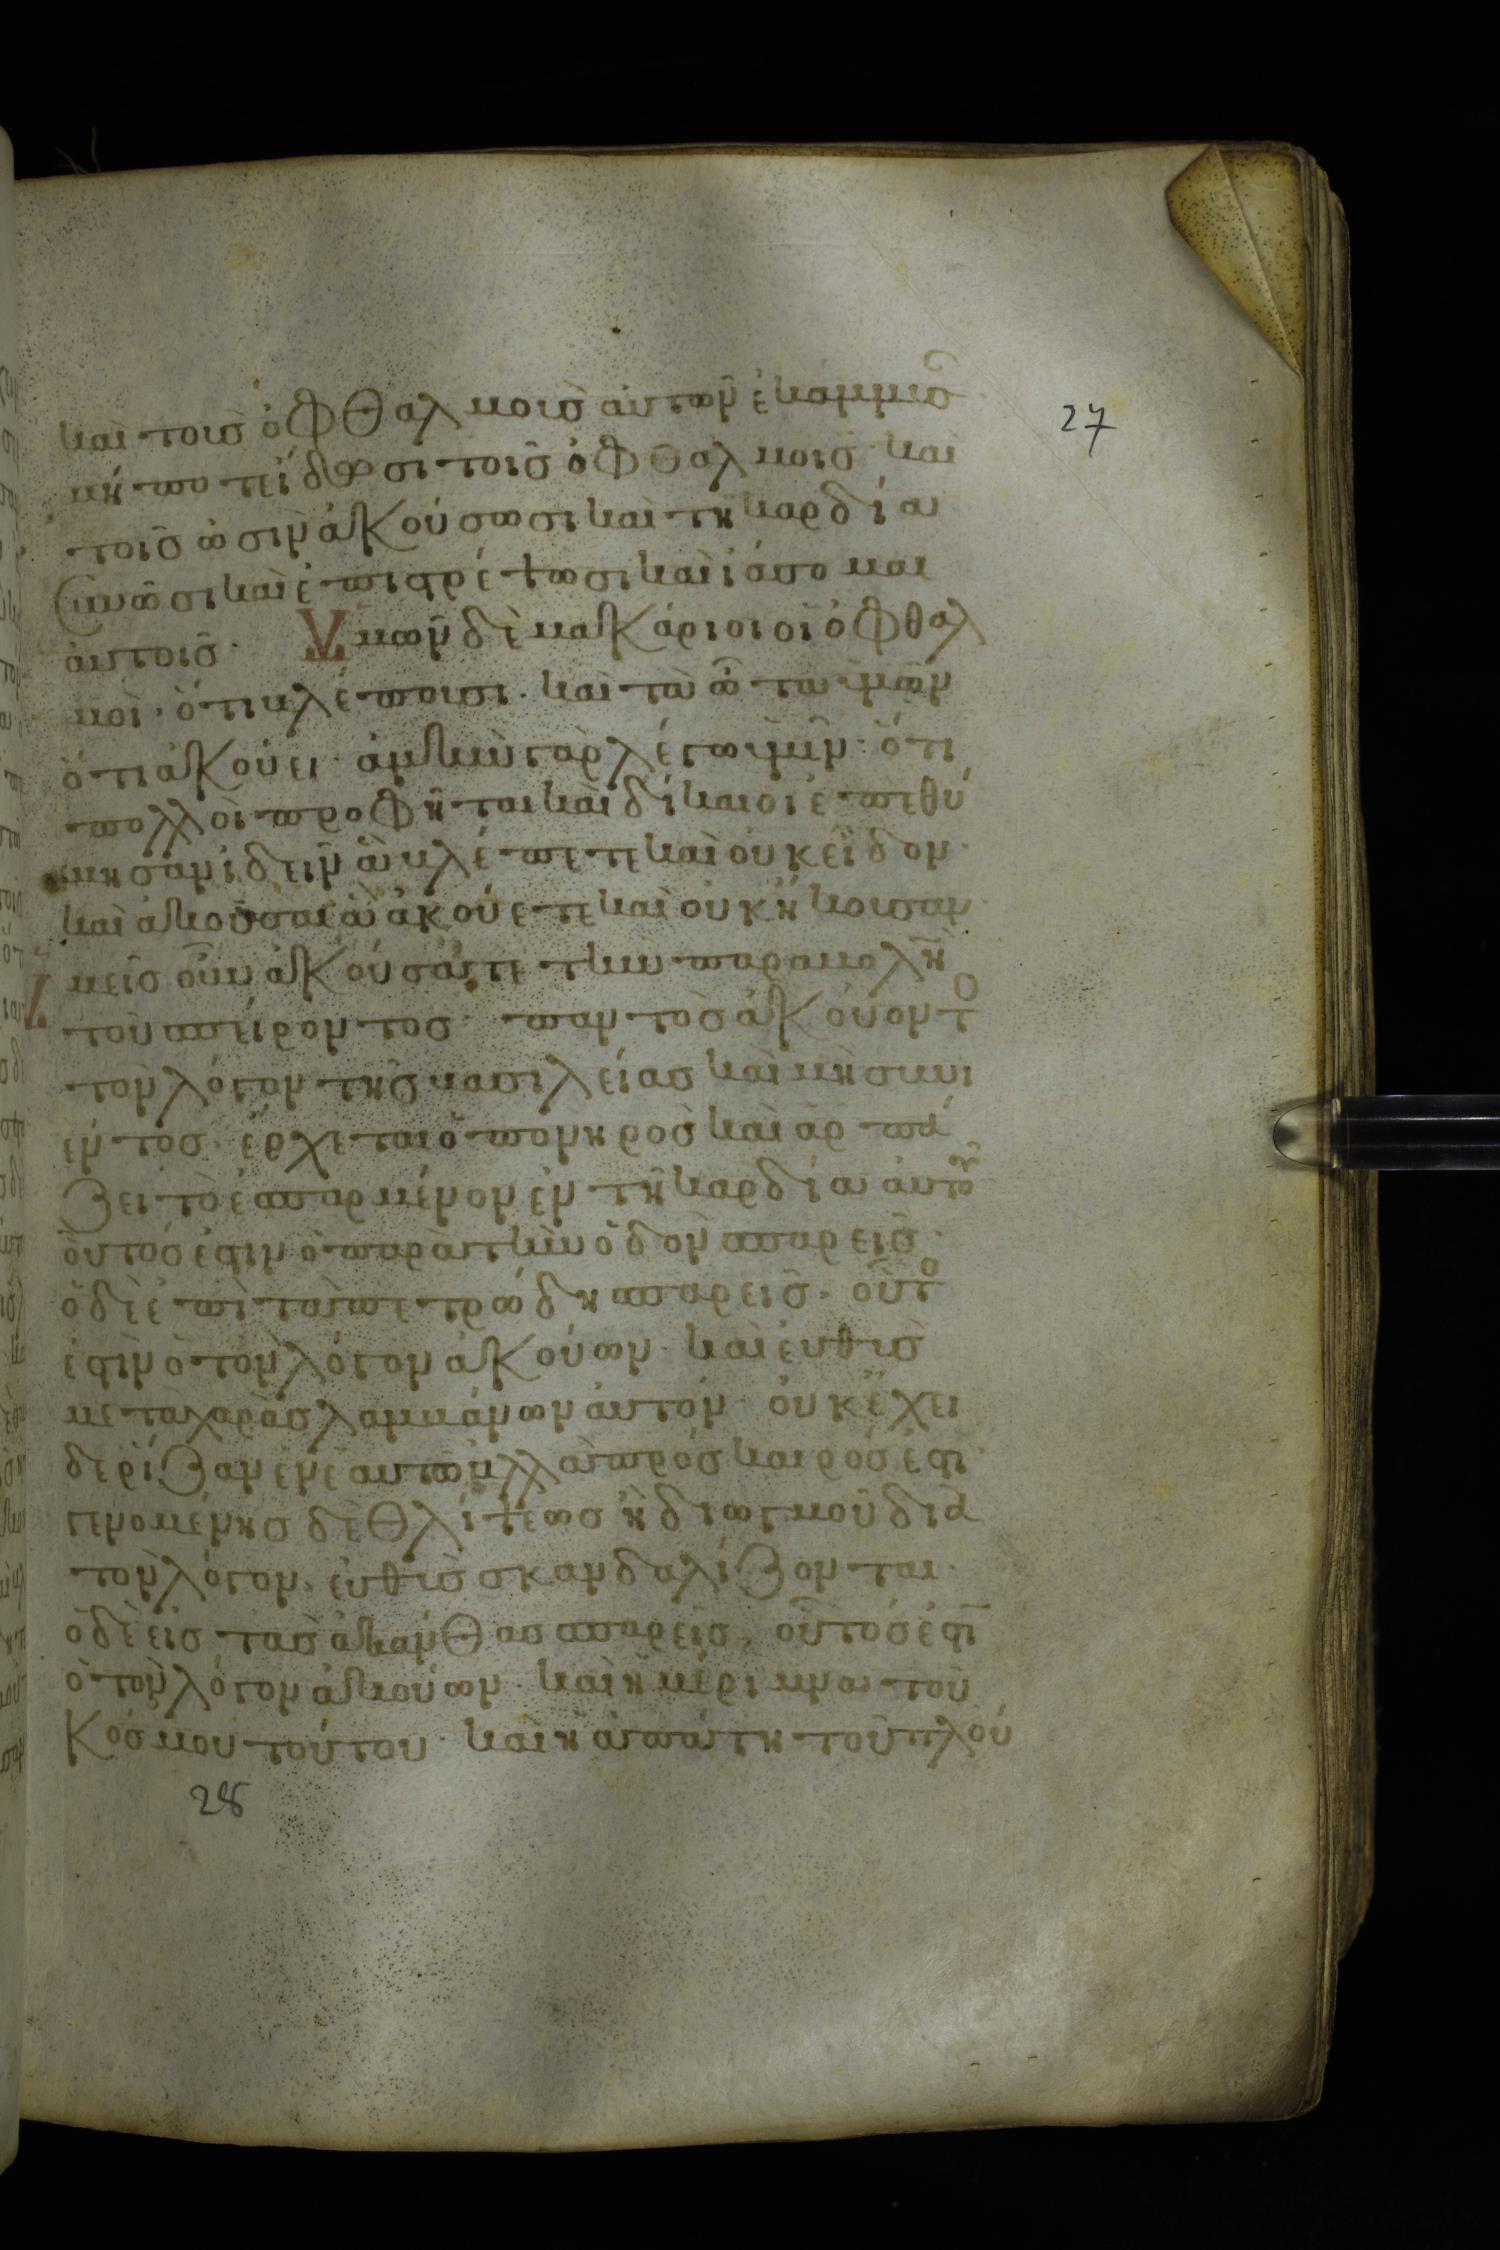 27
καὶ τοῖς ὀφθαλμοῖς αὐτῶν ἐκάμμυσ
μή ποτε ἴδωσι τοῖς ὀφθαλμοῖς καὶ
τοῖς ὠσὶν ἀκούσωσι καὶ τῆ καρδία
συνῶσι καὶ ἐπιστρέψωσι καὶ ἰάσομαι
αὐτοῖς. Ὑμῶν δὲ μακάριοι οἱ ὀφθαλ
μοὶ. ὅτι βλέπουσι. καὶ τὰ ὦτα ὑμῶν
ὅτι ἀκούει. ἀμὴν γὰρ λέγω ὑμῖν. ὅτι
πολλοὶ προφῆται καὶ δίκαιοι ἐπεθύ
μησαν ἰδεῖν ἃ βλέπετε καὶ οὐκ εἶδον.
καὶ ἀκοῦσαι ἃ ἀκούετε καὶ οὐκ ἤκουσαν.
Ὑμεῖς οὖν ἀκούσατε τὴν παραβολὴν
τοῦ σπείροντος. παντὸς ἀκούοντο
τὸν λόγον τῆς βασιλείας καὶ μὴ συνι
έντος. ἔρχεται ὁ πονηρὸς καὶ ἁρπά
ζει τὸ ἐσπαρμένον ἐν τῆ καρδία αὐτοῦ
οὗτός ἐστιν ὁ παρὰ τὴν ὁδὸν σπαρείς.
ὁ δὲ ἐπὶ τὰ πετρώδη σπαρείς. οὗτο
ἐστὶν ὁ τὸν λόγον ἀκούων. καὶ εὐθὺς
μετὰ χαρᾶς λαμβάνων αὐτόν. οὐκ ἔχει
δὲ ῥίζαν ἐν ἑαυτῶ ἀλλὰ πρόσκαιρός ἐστι.
γενομένης δὲ θλίψεως ἢ διωγμοῦ διὰ
τὸν λόγον. εὐθὺς σκανδαλίζονται.
ὁ δὲ εἰς τὰς ἀκάνθας σπαρείς. οὗτός ἐστι
ὁ τὸν λόγον ἀκούων. καὶ ἡ μέριμνα τοῦ
κόσμου τούτου. καὶ ἡ ἀπάτη τοῦ πλού
28